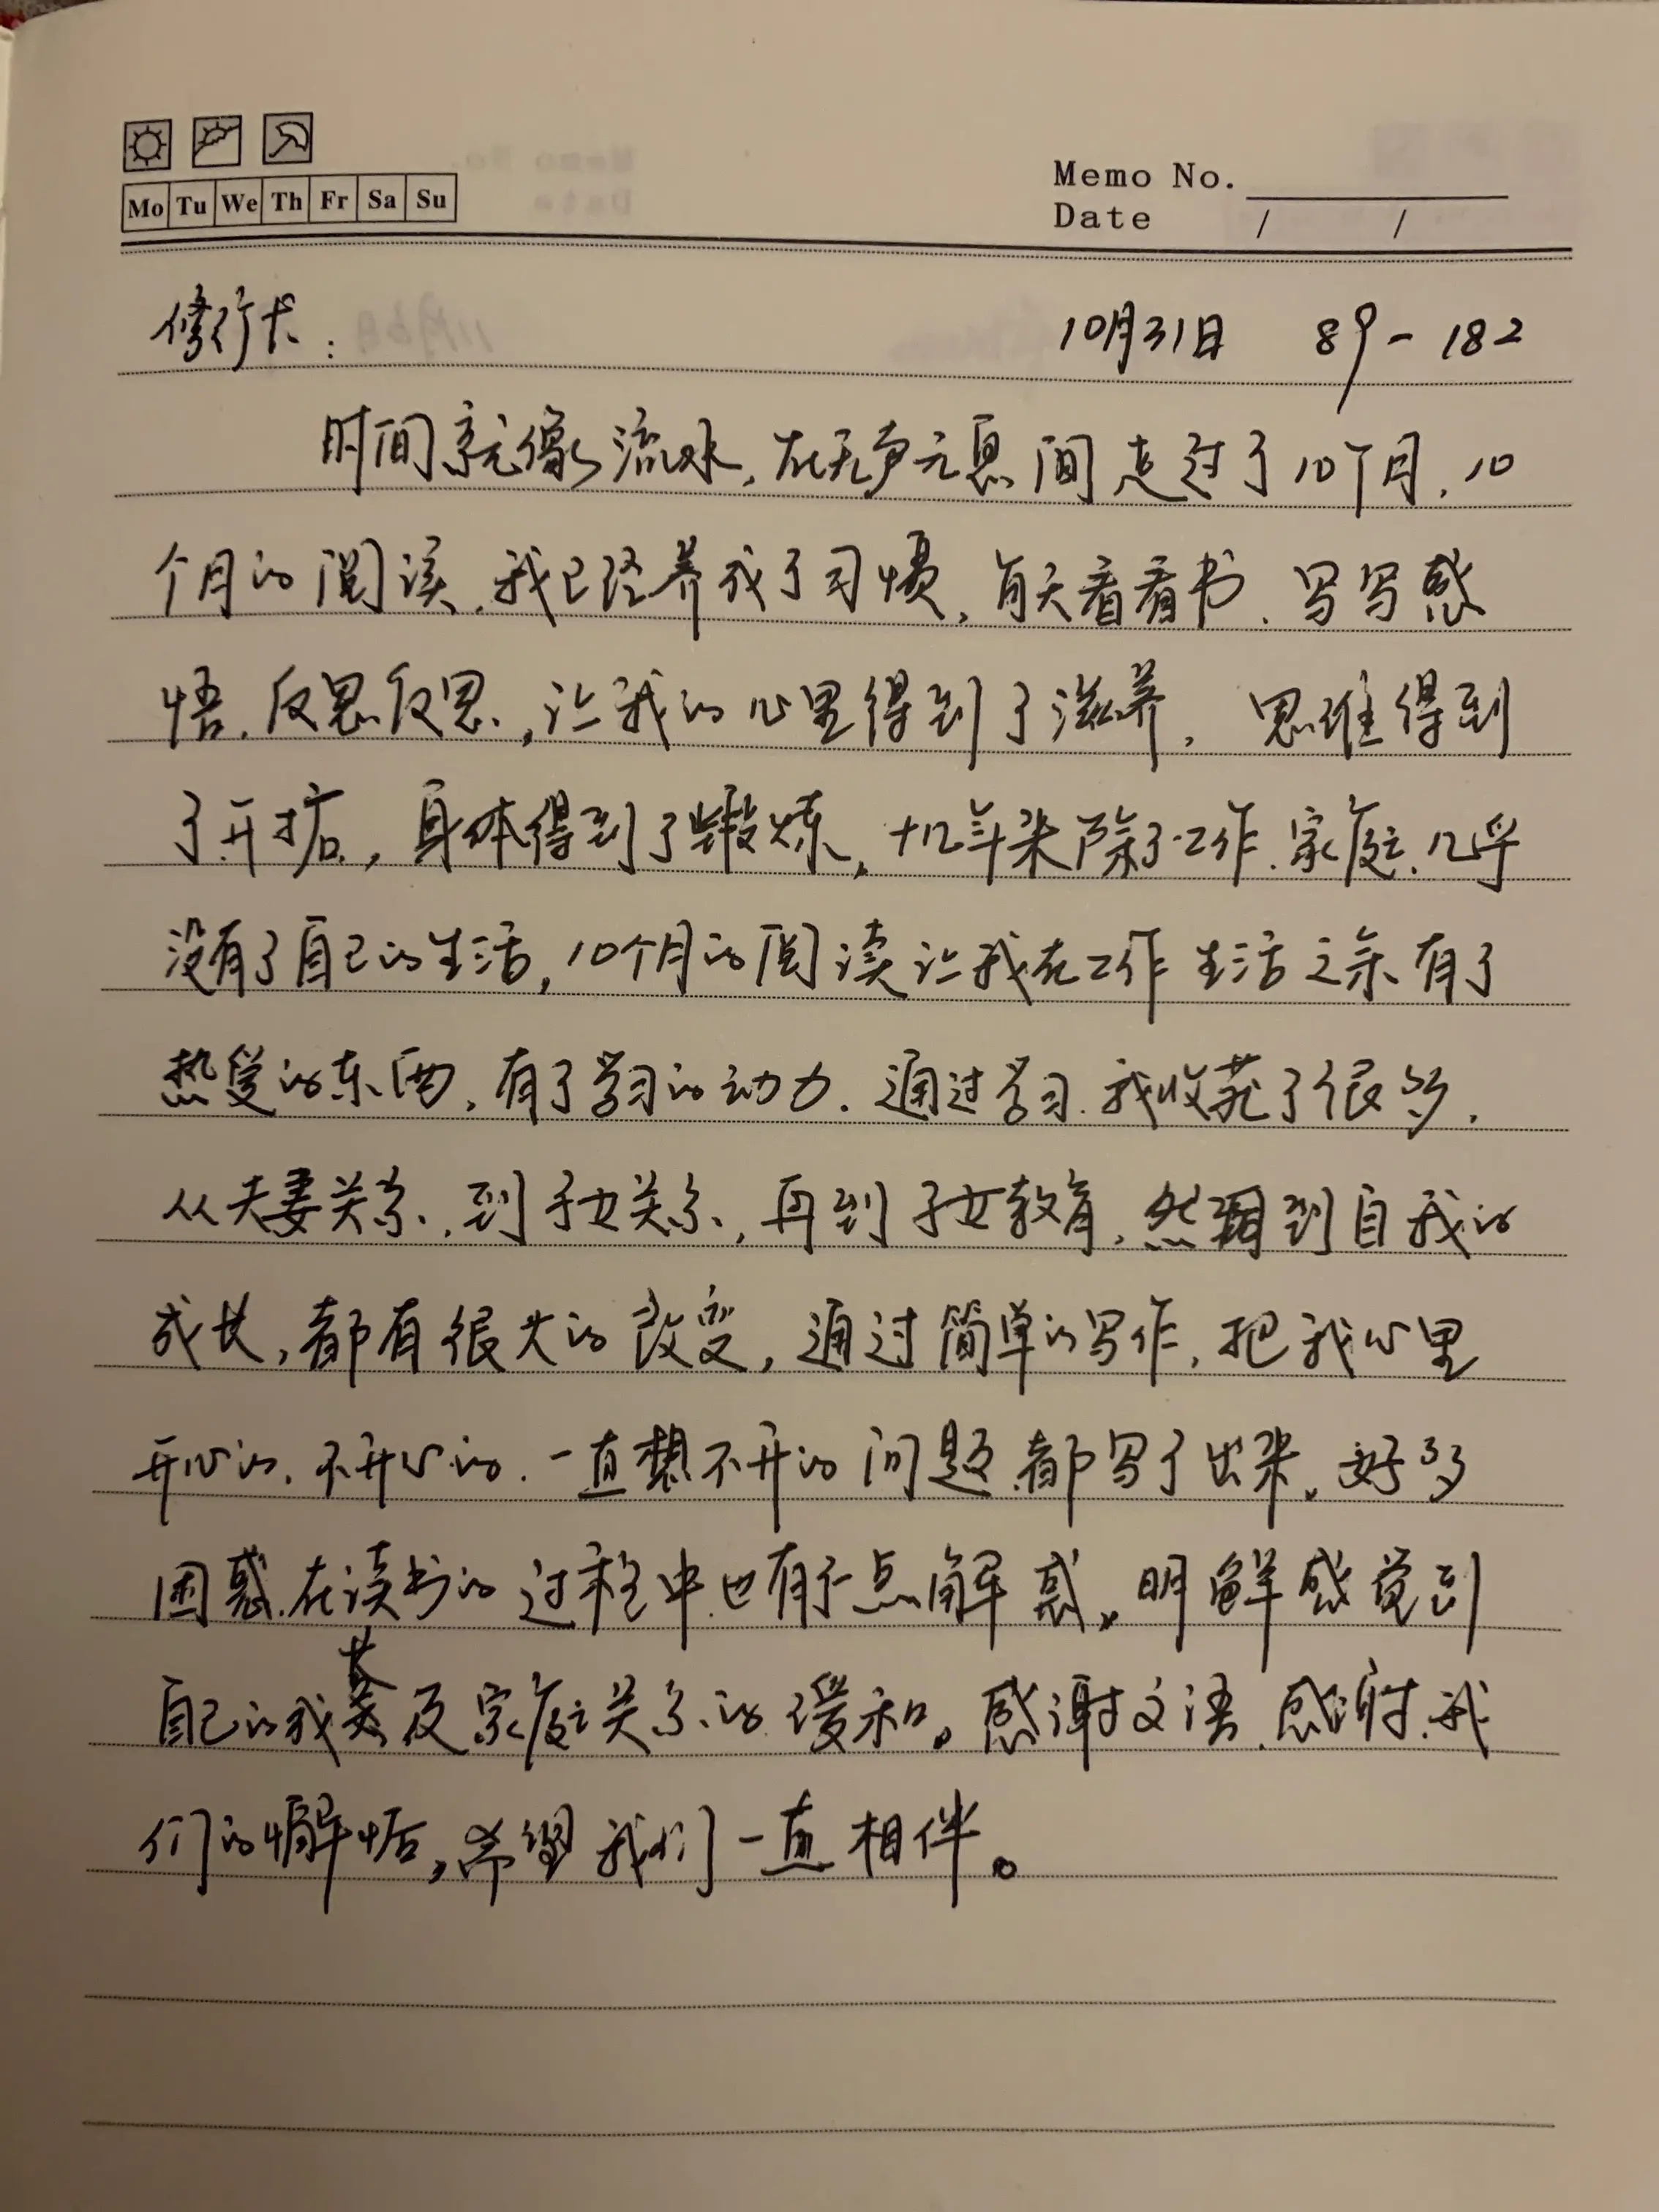 Mo Tu We Th Fr Sa Su
Memo No.
Date / /
修行卡：
10月31日 89-182
时间就像流水，在无声无息间走过了10个月，10
个月的阅读，我已经养成了习惯，每天看看书、写写感
悟，反思反思，让我的心里得到了滋养，思维得到
了开拓，身体得到了锻炼，十几年来除了工作、家庭，几乎
没有了自己的生活，10个月的阅读让我在工作生活之余有了
热爱的东西，有了学习的动力，通过学习，我收获了很多，
从夫妻关系，到子女关系，再到子女教育，然到自我的
成长，都有很大的改变，通过简单的写作，把我心里
开心的，不开心的，一直想不开的问题都写了出来，好多
困惑，在读书的过程中也有了一点解惑，明鲜感觉到
自己的成长及家庭关系的缓和。感谢文语，感谢我
们的懈怠，希望我们一直相伴。